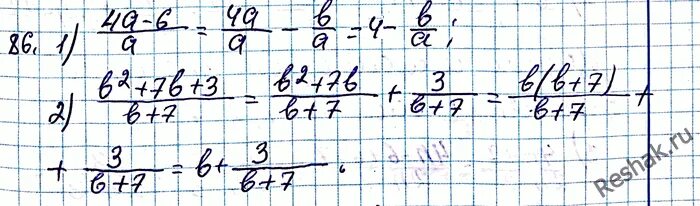 86. 1) (4a-b)/a = 4a/a - b/a = 4 - b/a;
2) (b²+7b+3)/(b+7) = (b²+7b)/(b+7) + 3/(b+7) = b(b+7)/(b+7) +
+ 3/(b+7) = b + 3/(b+7).
Reshak.ru